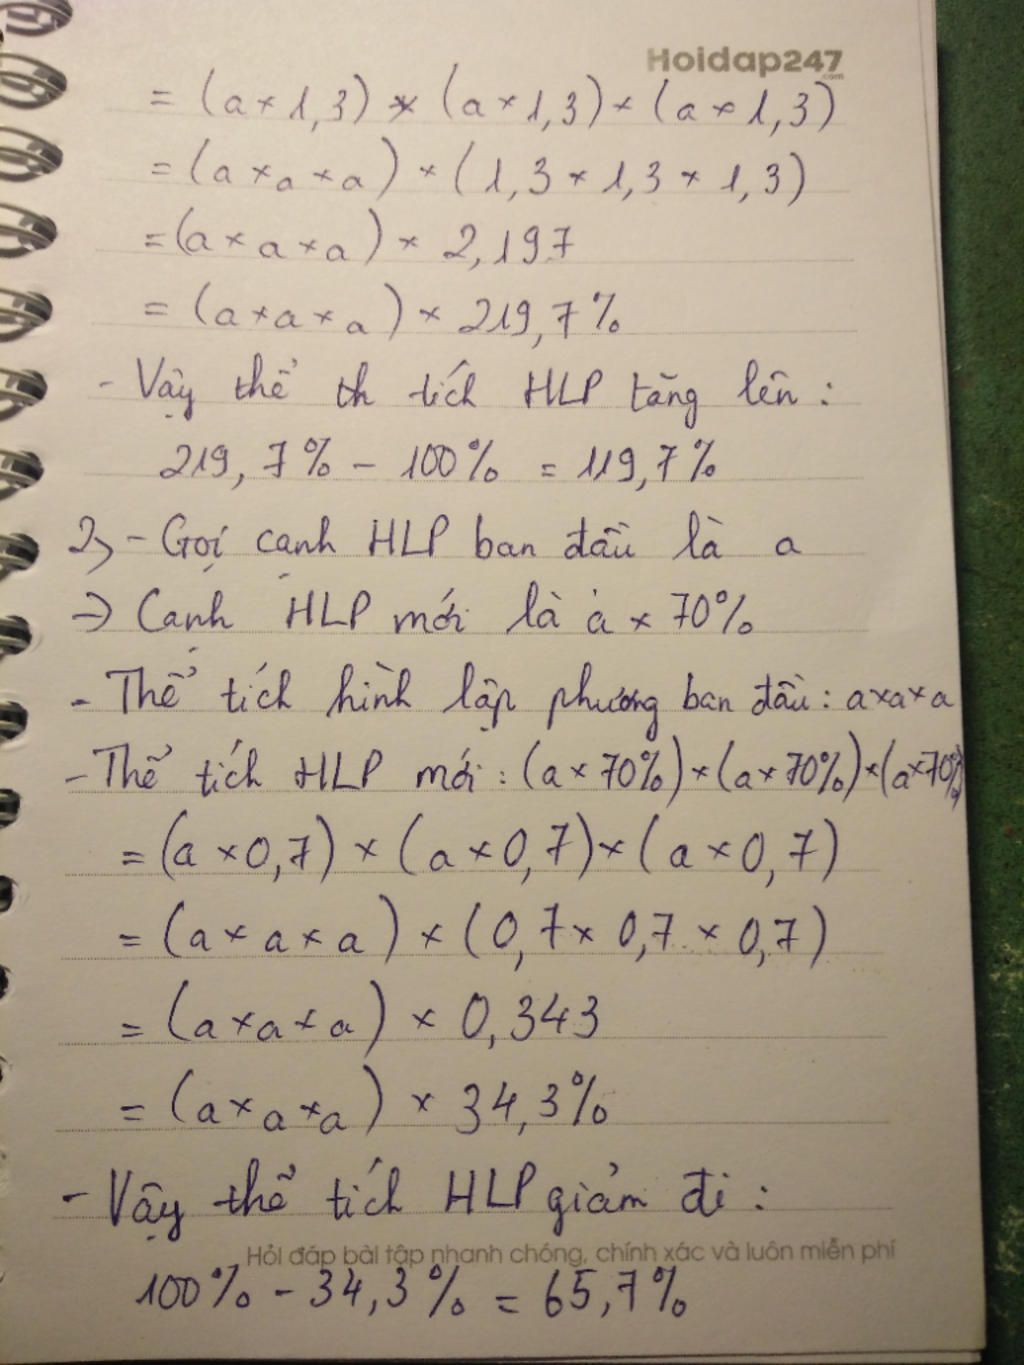 Hoidap247
.com
= (a × 1,3) × (a × 1,3) × (a × 1,3)
= (a × a × a) × (1,3 × 1,3 × 1,3)
= (a × a × a) × 2,197
= (a × a × a) × 219,7%
- Vậy thể th tích HLP tăng lên :
219,7% - 100% = 119,7%
2, - Gọi cạnh HLP ban đầu là a
→ Cạnh HLP mới là a × 70%
- Thể tích hình lập phương ban đầu : a×a×a
- Thể tích HLP mới : (a × 70%) × (a × 70%) × (a × 70%)
= (a × 0,7) × (a × 0,7) × (a × 0,7)
= (a × a × a) × (0,7 × 0,7 × 0,7)
= (a × a × a) × 0,343
= (a × a × a) × 34,3%
- Vậy thể tích HLP giảm đi :
Hỏi đáp bài tập nhanh chóng, chính xác và luôn miễn phí
100% - 34,3% = 65,7%